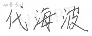 代海波